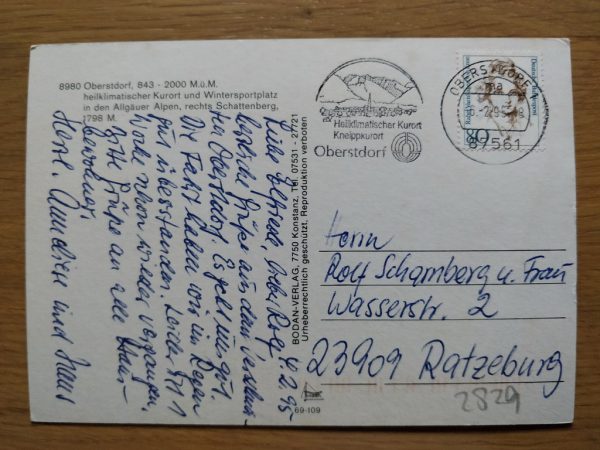 8980 Oberstdorf, 843 - 2000 M.ü.M.
heilklimatischer Kurort und Wintersportplatz
in den Allgäuer Alpen, rechts Schattenberg,
1798 M.
4.2.95
Liebe Elfriede, lieber Rolf,
herzliche Grüße aus dem verschnei-
ten Oberstdorf. Es geht uns gut.
Die Fahrt haben wir im Regen
gut überstanden. Leider ist 1
Woche schon wieder vergangen.
Bitte Grüße an alle Haus-
bewohner,
Herzl. Anneliese und Hans
BODAN-VERLAG, 7750 Konstanz, Tel. 07531 - 27721
Urheberrechtlich geschützt. Reproduktion verboten
69-109
Heilklimatischer Kurort
Kneippkurort
Oberstdorf
OBERSTDORF
87561
Deutsche Bundespost
80
Herrn
Rolf Schamberg u. Frau
Wasserstr. 2
23909 Ratzeburg
2829